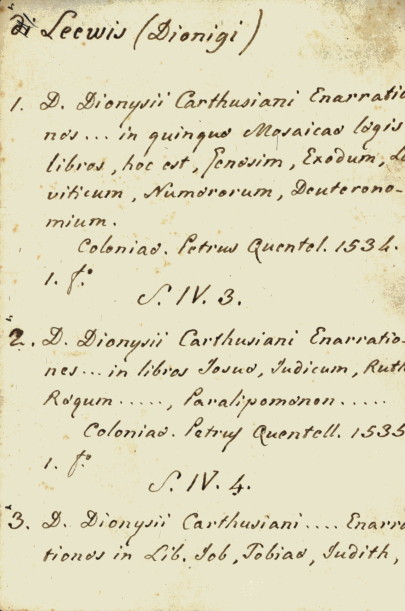 di Leewis (Dionigi)
1. D. Dionysii Carthusiani Enarratio
nes... in quinque Mosaicae legis
libros, hoc est, Genesim, Exodum, Le
viticum, Numerorum, Deuterono-
mium.
Coloniae. Petrus Quentel. 1534.
1. fo
S. IV. 3.
2. D. Dionysii Carthusiani Enarratio-
nes... in libros Josue, Judicum, Ruth
Regum ....., Paralipomenon .....
Coloniae. Petrus Quentell. 1535
1. fo
S. IV. 4.
3. D. Dionysii Carthusiani .... Enarra
tiones in Lib. Job, Tobiae, Judith,